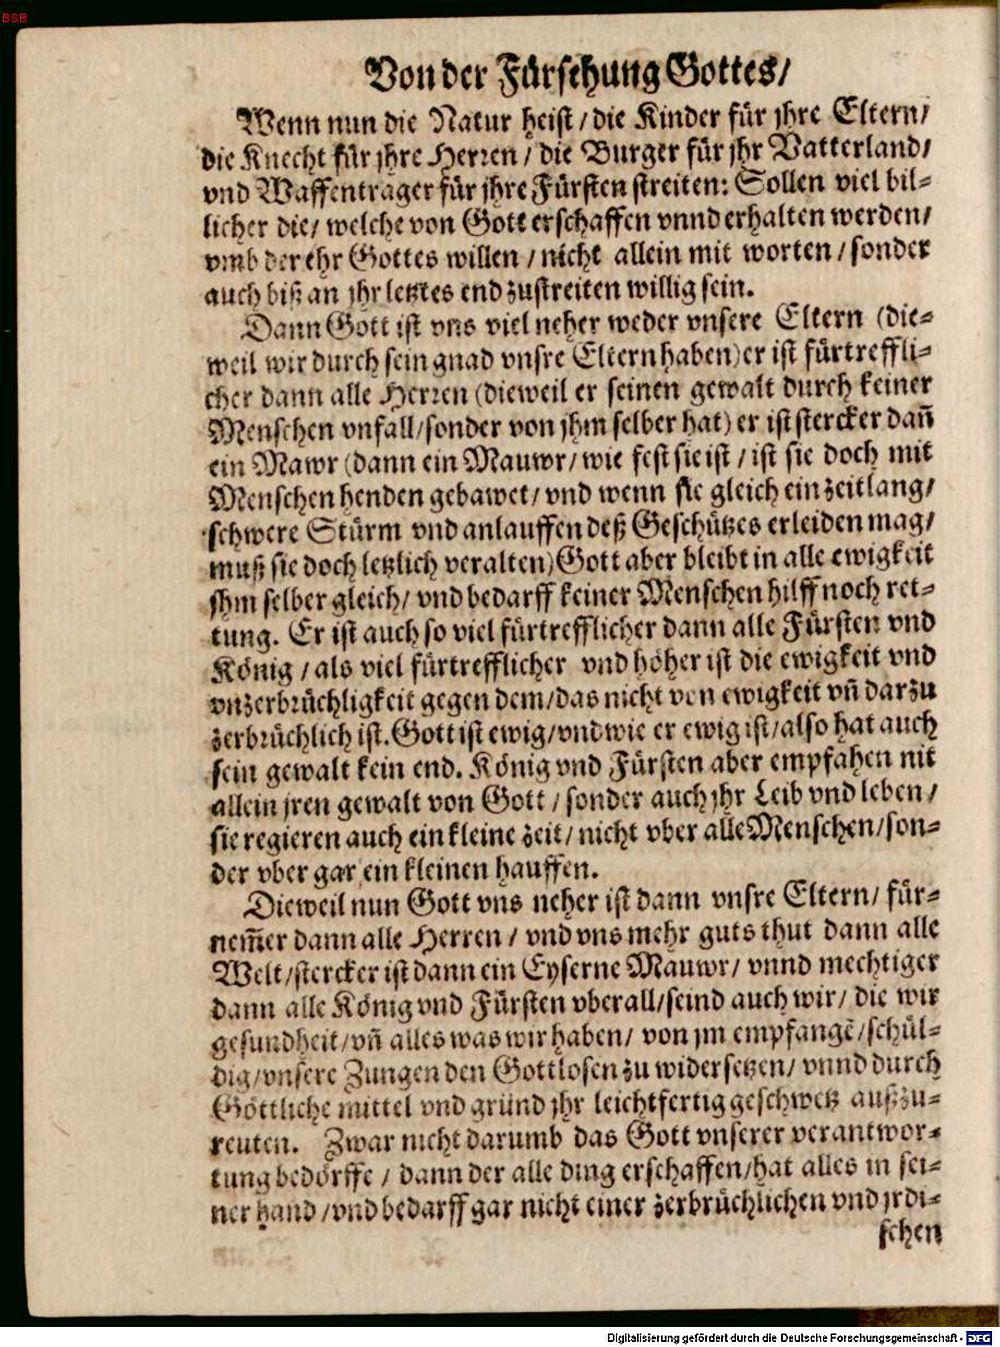 BSB
Von der Fürsehung Gottes/
Wenn nun die Natur heist/die Kinder für jhre Eltern/
die Knecht für jhre Herren/die Burger für jhr Vatterland/
vnd Waffenträger für jhre Fürsten streiten: Sollen viel bil-
licher die/welche von Gott erschaffen vnnd erhalten werden/
vmb der ehr Gottes willen/nicht allein mit worten/sonder
auch biß an jhr letztes end zustreiten willig sein.
Dann Gott ist vns viel neher weder vnsere Eltern (die-
weil wir durch sein gnad vnsre Eltern haben) er ist fürtreffli-
cher dann alle Herren (dieweil er seinen gewalt durch keiner
Menschen vnfall/sonder von jhm selber hat) er ist stercker dañ
ein Mawr (dann ein Mauwr/wie fest sie ist/ist sie doch mit
Menschen henden gebawet/vnd wenn sie gleich ein zeitlang/
schwere Stürm vnd anlauffen deß Geschützes erleiden mag/
muß sie doch letzlich veralten) Gott aber bleibt in alle ewigkeit
jhm selber gleich/vnd bedarff keiner Menschen hilff noch ret-
tung. Er ist auch so viel fürtrefflicher dann alle Fürsten vnd
König/als viel fürtrefflicher vnd höher ist die ewigkeit vnd
vnzerbrüchligkeit gegen dem/das nicht von ewigkeit vñ darzu
zerbrüchlich ist. Gott ist ewig/vnd wie er ewig ist/also hat auch
sein gewalt kein end. König vnd Fürsten aber empfahen nit
allein jren gewalt von Gott/sonder auch jhr Leib vnd leben/
sie regieren auch ein kleine zeit/nicht vber alle Menschen/son-
der vber gar ein kleinen hauffen.
Dieweil nun Gott vns neher ist dann vnsre Eltern/für-
nem̃er dann alle Herren/vnd vns mehr guts thut dann alle
Welt/stercker ist dann ein Eyserne Mauwr/vnnd mechtiger
dann alle König vnd Fürsten vberall/seind auch wir/die wir
gesundheit/vñ alles was wir haben/von jm empfangẽ/schül-
dig/vnsere Zungen den Gottlosen zu widersetzen/vnnd durch
Göttliche mittel vnd gründ jhr leichtfertig geschwetz außzu-
reuten. Zwar nicht darumb das Gott vnserer verantwor-
tung bedörffe/dann der alle ding erschaffen/hat alles in sei-
ner hand/vnd bedarff gar nicht einer zerbrüchlichen vnd jrdi-
schen
Digitalisierung gefördert durch die Deutsche Forschungsgemeinschaft - DFG